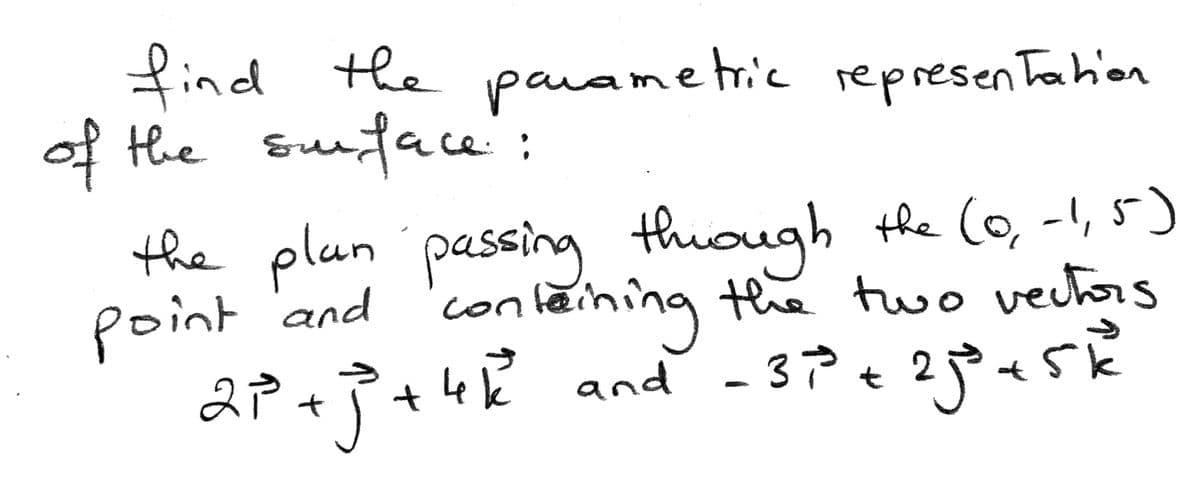 find the parametric representation
of the surface :
the plan passing through the (0, -1, 5)
point and containing the two vectors
2i⃗ + j⃗ + 4k⃗ and -3i⃗ + 2j⃗ + 5k⃗